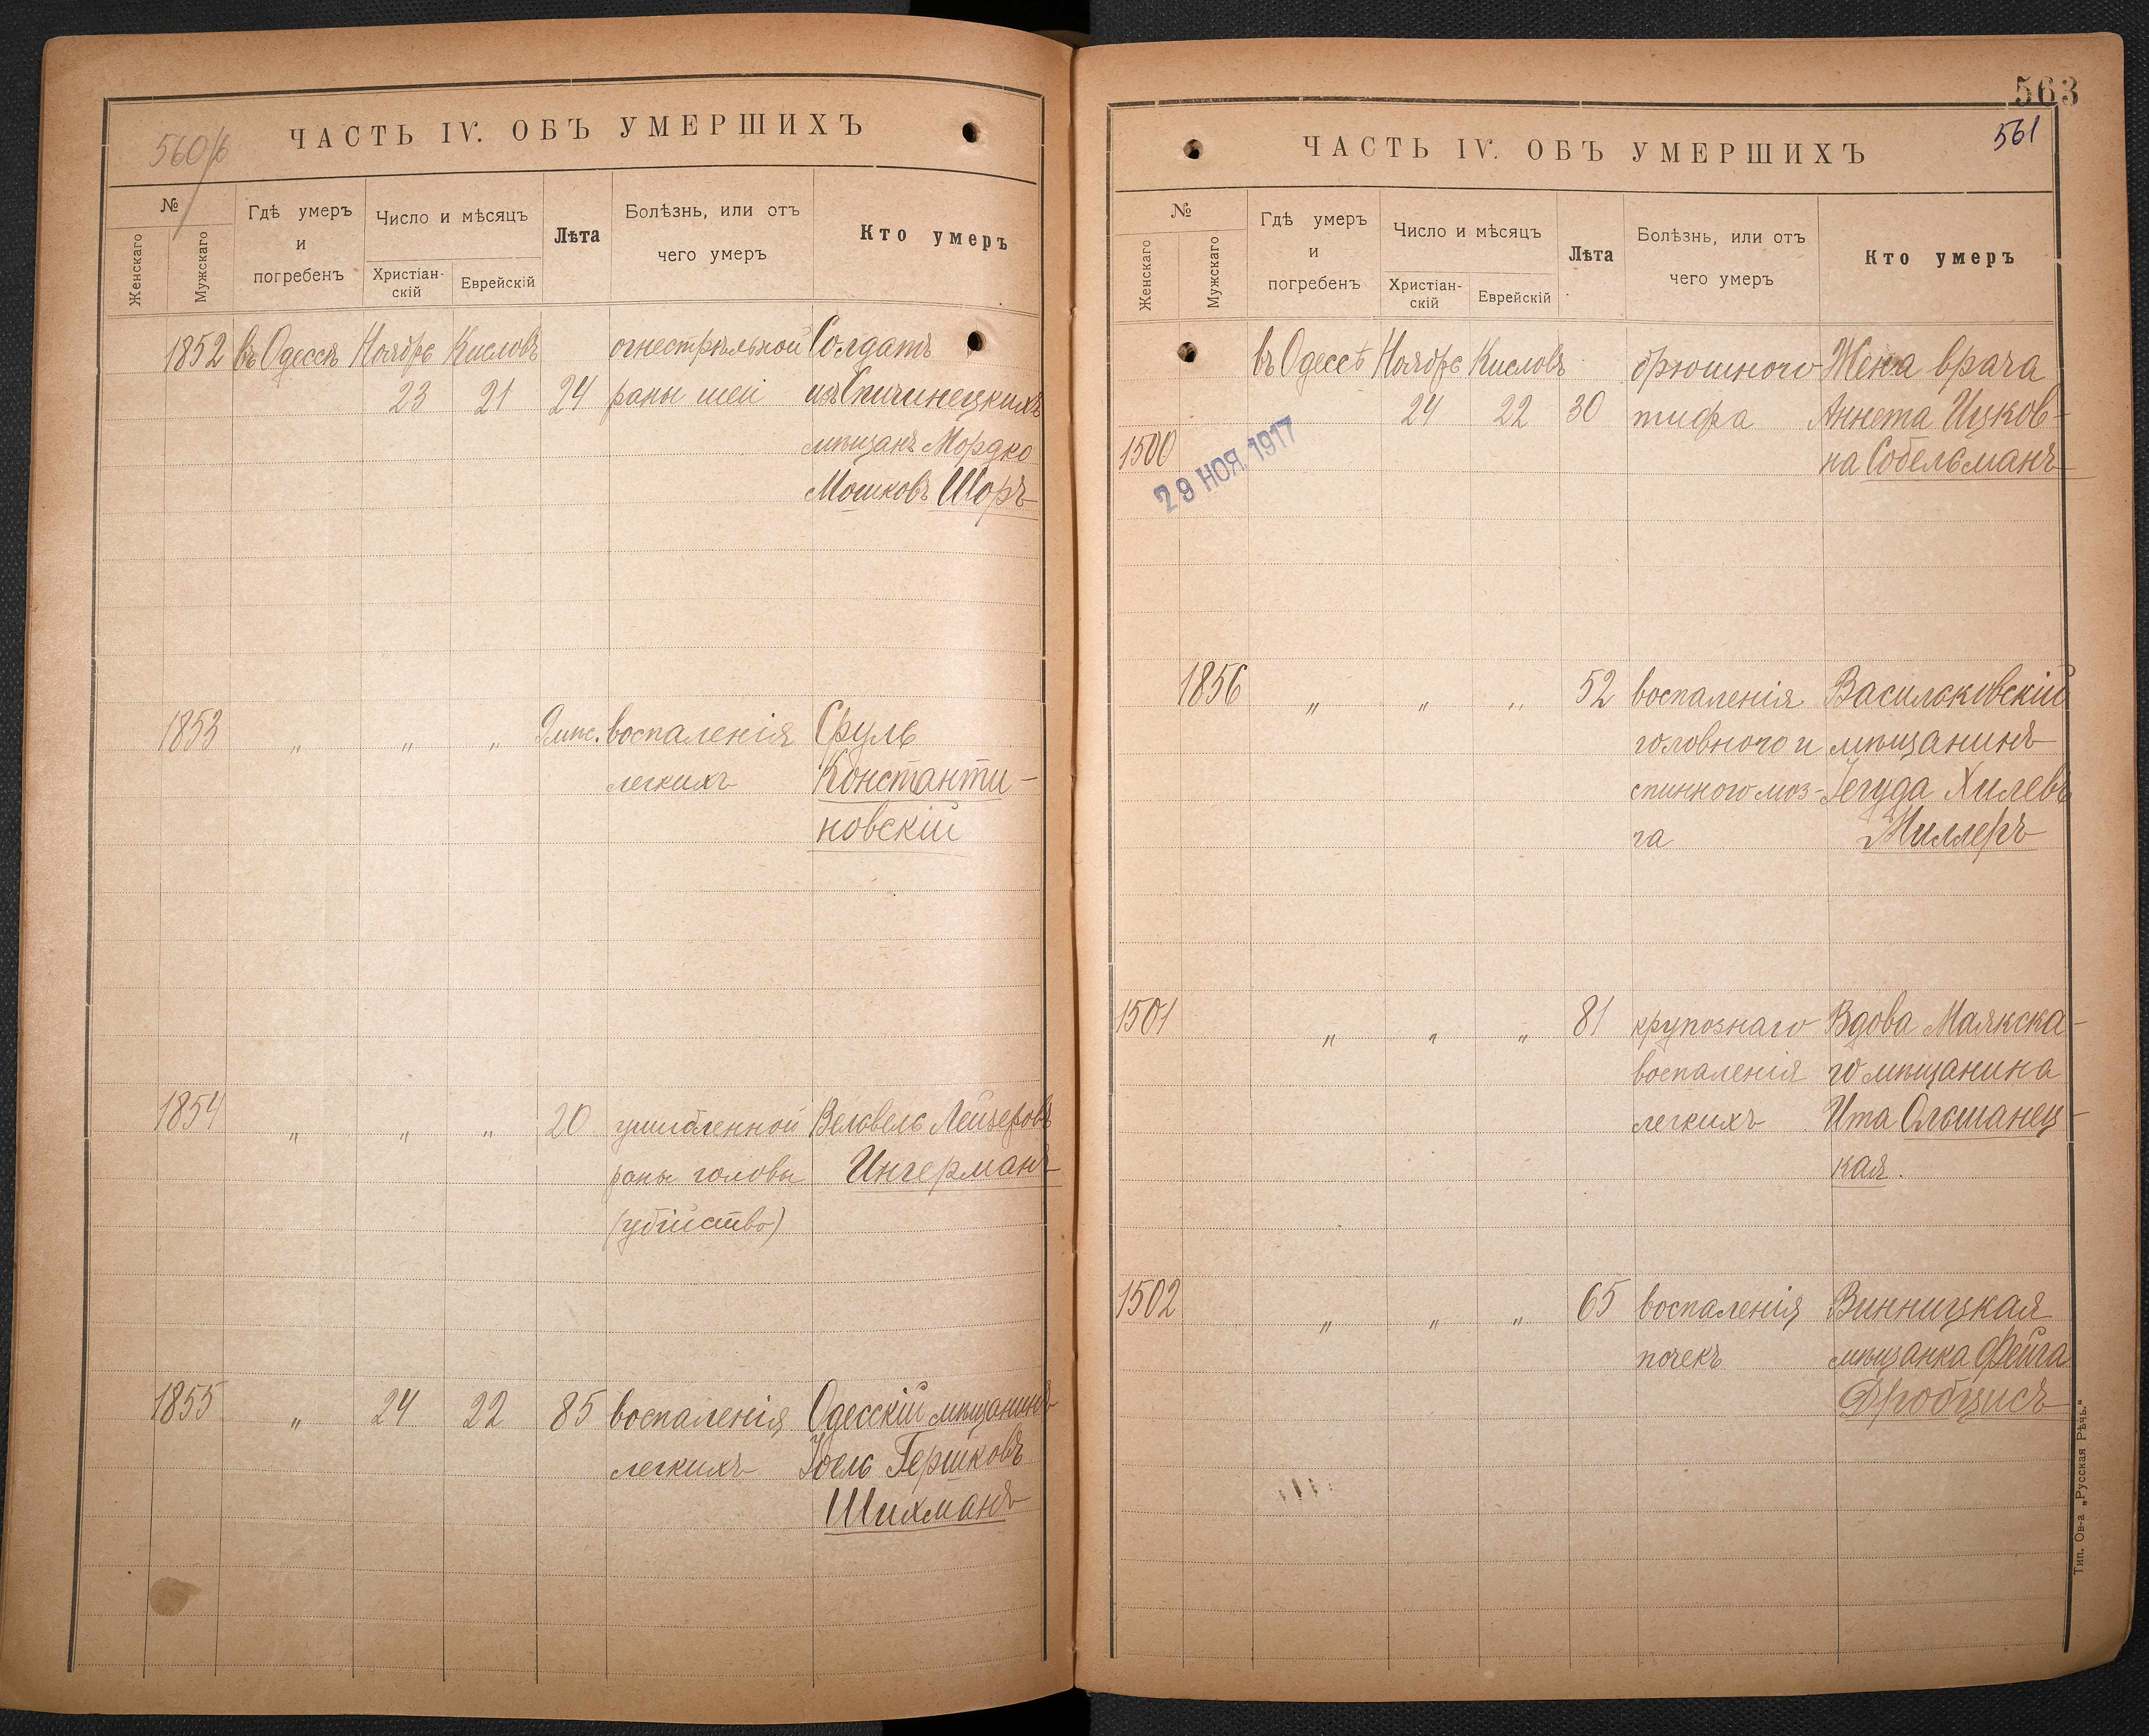 560/б
ЧАСТЬ IV. ОБЪ УМЕРШИХЪ
№
Женскаго
Мужскаго
Гдѣ умеръ
и
погребенъ
Число и мѣсяцъ
Христіан-
скій
Еврейскій
Лѣта
Болѣзнь, или отъ
чего умеръ
Кто умеръ
1852 въ Одессѣ Ноябрь Кисловъ огнестрѣльной Солдатъ
23 21 24 раны шеи изъ Спичинецкихъ
мѣщанъ Мордко
Мошковъ Шоръ
1853 " " " 9 мѣс. воспаленія Сруль
легкихъ Константи-
новскій
1854 " " " 20 ушибленной Вельвель Лейзеровъ
раны головы Ингерманъ
(убійство)
1855 " 24 22 85 воспаленія Одесскій мѣщанинъ
легкихъ Іоель Гершковъ
Шихманъ
563
561
ЧАСТЬ IV. ОБЪ УМЕРШИХЪ
№
Женскаго
Мужскаго
Гдѣ умеръ
и
погребенъ
Число и мѣсяцъ
Христіан-
скій
Еврейскій
Лѣта
Болѣзнь, или отъ
чего умеръ
Кто умеръ
въ Одессѣ Ноябрь Кисловъ брюшного Жена врача
24 22 30 тифа Аннета Ицков-
1500 на Собельманъ
29 НОЯ. 1917
1856 " " " 52 воспаленія Васильковскій
головного и мѣщанинъ
спинного моз- Іегуда Хилевъ
га Миллеръ
1501 " " " 81 крупознаго Вдова Маякска-
воспаленія го мѣщанина
легкихъ Ита Ольшанец-
кая.
1502 " " " 65 воспаленія Винницкая
почекъ мѣщанка Фейга
Дробцисъ
Тип. Ов-а „Русская Рѣчь.“